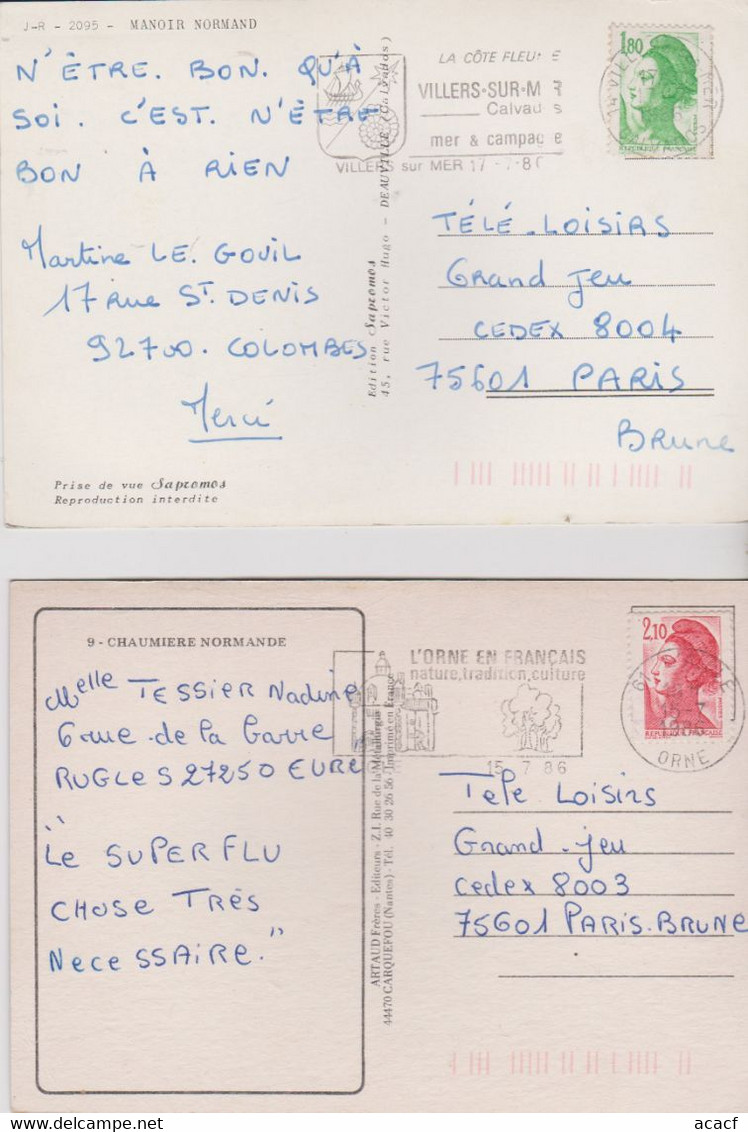 J-R - 2095 - MANOIR NORMAND
N'ÊTRE. BON. QU'À
SOI. C'EST. N'ÊTRE
BON À RIEN
Martine LE. GOUIL
17 rue ST. DENIS
92700. COLOMBES
Merci
Prise de vue Sapromos
Reproduction interdite
Edition Sapromos
45, rue Victor Hugo - DEAUVILLE (Calvados)
LA CÔTE FLEU E
VILLERS-SUR-M R
Calvad s
mer & campag e
VILLERS sur MER 17 -7-86
1,80
REPUBLIQUE FRANCAISE
TÉLÉ-LOISIRS
Grand Jeu
CEDEX 8004
75601 PARIS
Brune
9 - CHAUMIERE NORMANDE
Melle TESSIER Nadine
6 rue de la Garre
RUGLES 27250 EURE
"
Le SUPERFLU
CHOSE TRÈS
NeceSSAIRE."
ARTAUD Frères - Editeurs - Z.I. Rue de la Métallurgie
44470 CARQUEFOU (Nantes) - Tél. 40 30 26 56 - Imprimé en France
L'ORNE EN FRANÇAIS
nature, tradition, culture
15 7 86
2,10
REPUBLIQUE FRANCAISE
ORNE
Tele Loisirs
Grand-Jeu
Cedex 8003
75601 PARIS-BRUNE
acacf